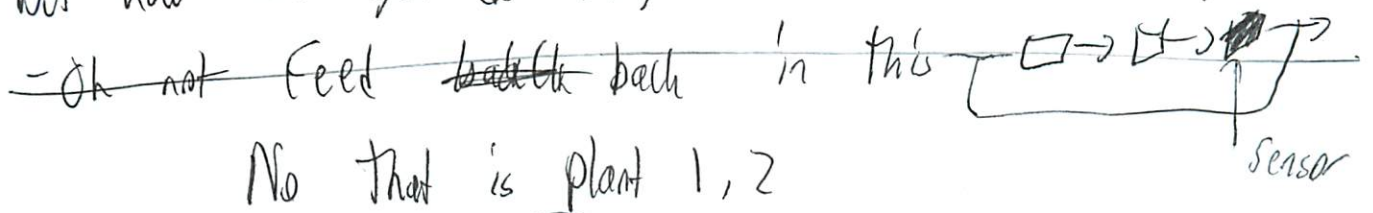 - Oh not Feed back in this
Sensor
No that is plant 1, 2